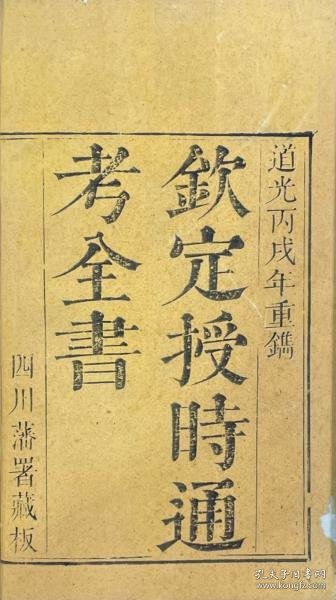 道光丙戌年重鐫
欽定授時通
考全書
四川藩署藏板
孔夫子旧书网